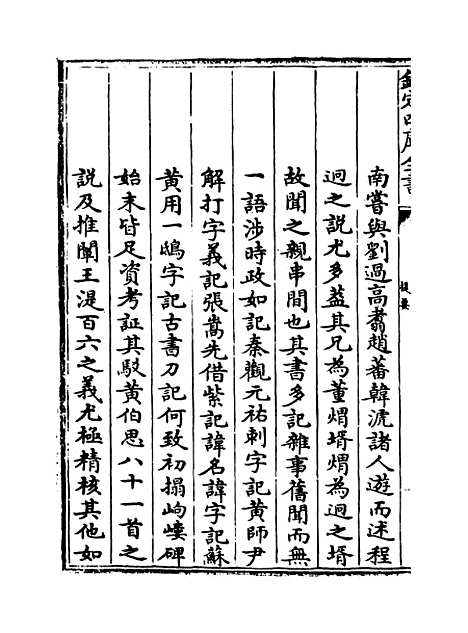 欽定四庫全書
提要
南嘗與劉過高翥趙蕃韓淲諸人遊而述程
迥之説尤多葢其兄為董煟壻煟為迥之壻
故聞之親串間也其書多記雜事舊聞而無
一語涉時政如記秦觀元祐刺字記黄師尹
解打字義記張嵩先借紫記諱名諱字記蘇
黄用一鴟字記古書刀記何致初搨岣嶁碑
始末皆足資考証其駁黄伯思八十一首之
説及推闡王湜百六之義尤極精核其他如